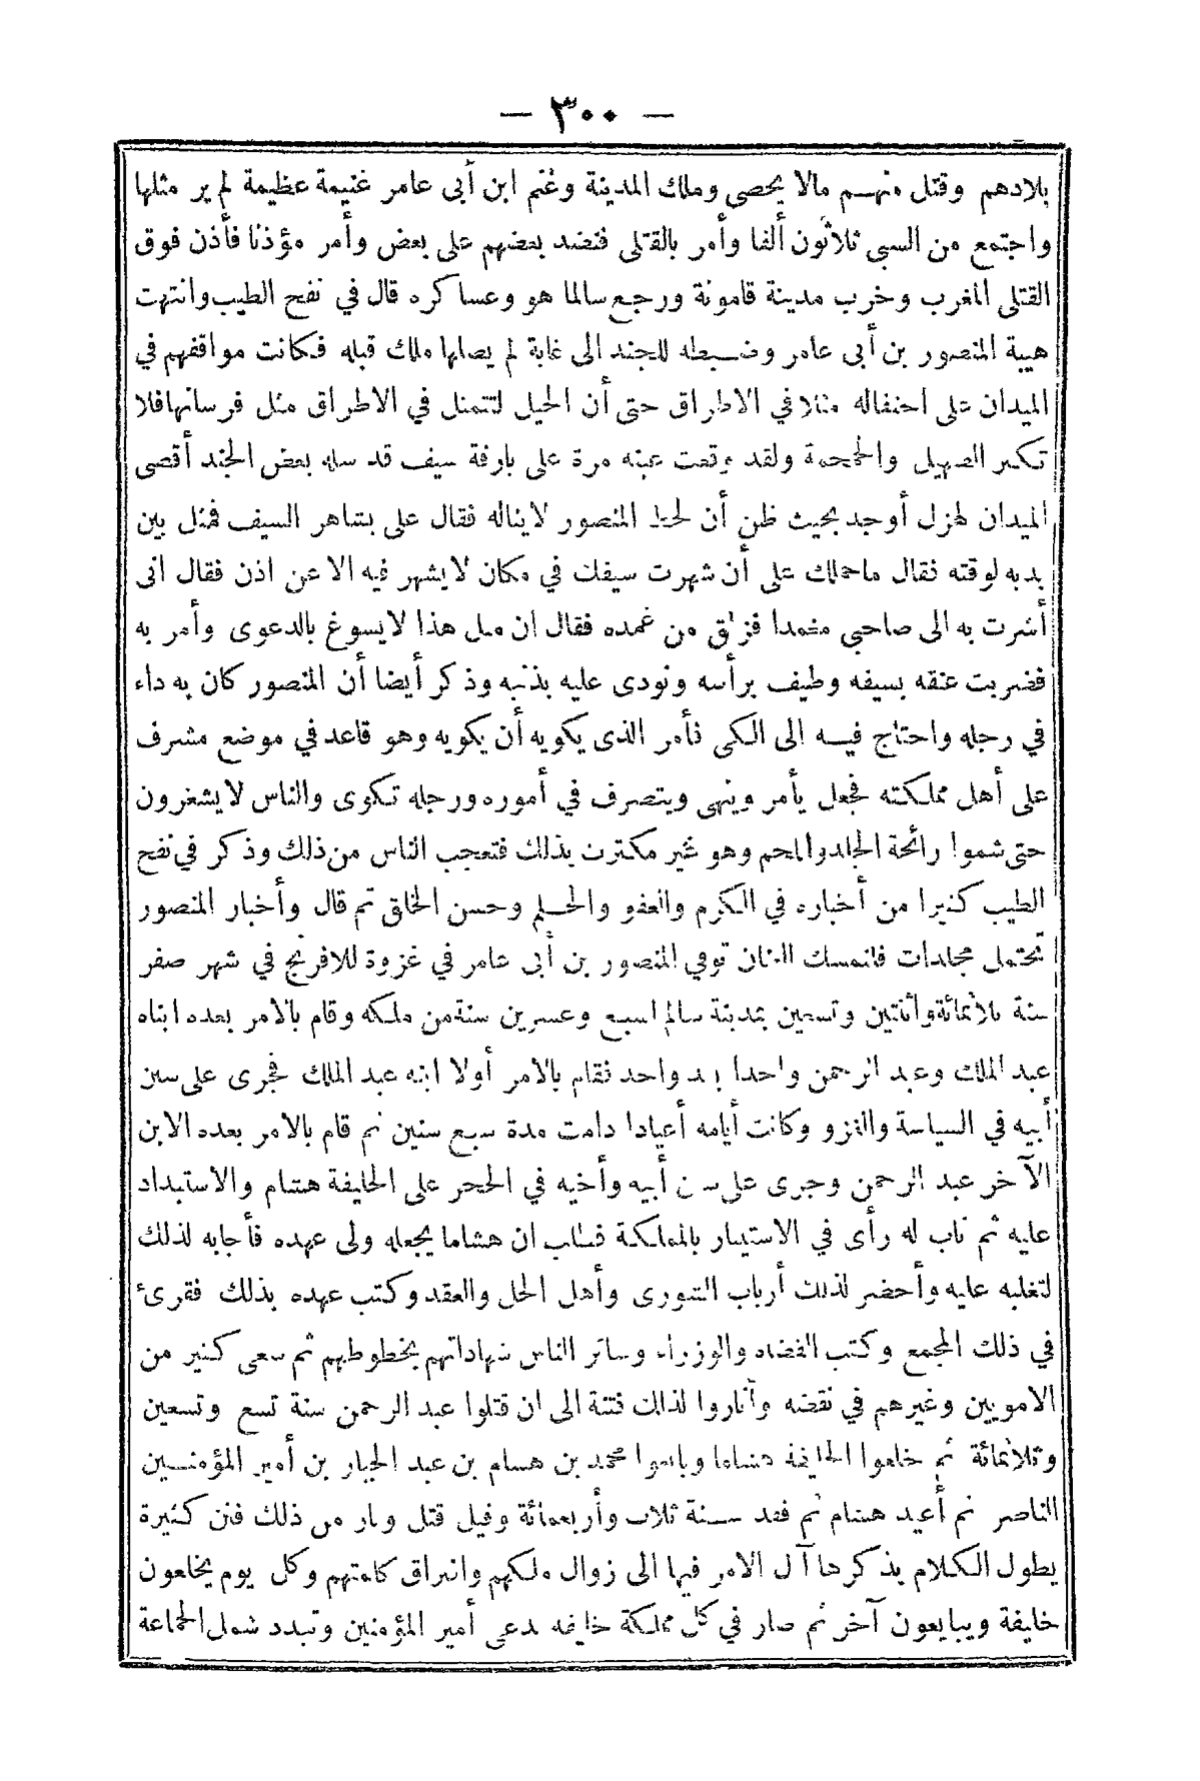 — ٣٠٠ —
بلادهم وقتل منهم مالا يحصى وملك المدينة وغنم ابن أبى عامر غنيمة عظيمة لم ير مثلها
واجتمع من السبى ثلاثون ألفا وأمر بالقتلى فنضد بعضهم على بعض وأمر مؤذنا فأذن فوق
القتلى المغرب وخرب مدينة قامونة ورجع سالما هو وعساكره قال في نفح الطيب وانتهت
هيبة المنصور بن أبى عامر وضبطه للجند الى غاية لم يصلها ملك قبله فكانت مواقفهم في
الميدان على احتفاله مثلا في الاطراق حتى أن الخيل لتتمثل في الاطراق مثل فرسانها فلا
تكثر الصهيل والحمحمة ولقد وقعت عينه مرة على بارقة سيف قد سله بعض الجند أقصى
الميدان لهزل أوجد بحيث ظن أن لحظ المنصور لايناله فقال على بشاهر السيف فمثل بين
يديه لوقته فقال ماحملك على أن شهرت سيفك في مكان لايشهر فيه الا عن اذن فقال انى
أشرت به الى صاحبي مغمدا فزلق من غمده فقال ان مثل هذا لايسوغ بالدعوى وأمر به
فضربت عنقه بسيفه وطيف برأسه ونودى عليه بذنبه وذكر أيضا أن المنصور كان به داء
في رجله واحتاج فيه الى الكى فأمر الذى يكويه أن يكويه وهو قاعد في موضع مشرف
على أهل مملكته فجعل يأمر وينهى ويتصرف في أموره ورجله تكوى والناس لايشعرون
حتى شموا رائحة الجلد واللحم وهو غير مكترث بذلك فتعجب الناس من ذلك وذكر في نفح
الطيب كثيرا من أخباره في الكرم والعفو والحلم وحسن الخلق ثم قال وأخبار المنصور
تحتمل مجلدات فلنمسك العنان توفي المنصور بن أبى عامر في غزوة للافرنج في شهر صفر
سنة ثلاثمائة واثنتين وتسعين بمدينة سالم لسبع وعشرين سنة من ملكه وقام بالامر بعده ابناه
عبد الملك وعبد الرحمن واحدا بعد واحد فقام بالامر أولا ابنه عبد الملك فجرى على سنن
أبيه في السياسة والغزو وكانت أيامه أعيادا دامت مدة سبع سنين ثم قام بالامر بعده الابن
الآخر عبد الرحمن وجرى على سنن أبيه وأخيه في الحجر على الخليفة هشام والاستبداد
عليه ثم ثاب له رأى في الاستيثار بالمملكة فطلب ان هشاما يجعله ولى عهده فأجابه لذلك
لتغلبه عليه وأحضر لذلك أرباب الشورى وأهل الحل والعقد وكتب عهده بذلك فقرئ
في ذلك المجمع وكتب القضاه والوزراء وسائر الناس شهاداتهم بخطوطهم ثم سعى كثير من
الامويين وغيرهم في نقضه وأثاروا لذلك فتنة الى ان قتلوا عبد الرحمن سنة تسع وتسعين
وثلاثمائة ثم خلعوا الخليفة هشاما وبايعوا محمد بن هشام بن عبد الجبار بن أمير المؤمنين
الناصر ثم أعيد هشام ثم فقد سنة ثلاث وأربعمائة وقيل قتل وثار من ذلك فتن كثيرة
يطول الكلام بذكرها آل الامر فيها الى زوال ملكهم وافتراق كلمتهم وكل يوم يخلعون
خليفة ويبايعون آخر ثم صار في كل مملكة خليفه يدعى أمير المؤمنين وتبدد شمل الجماعة